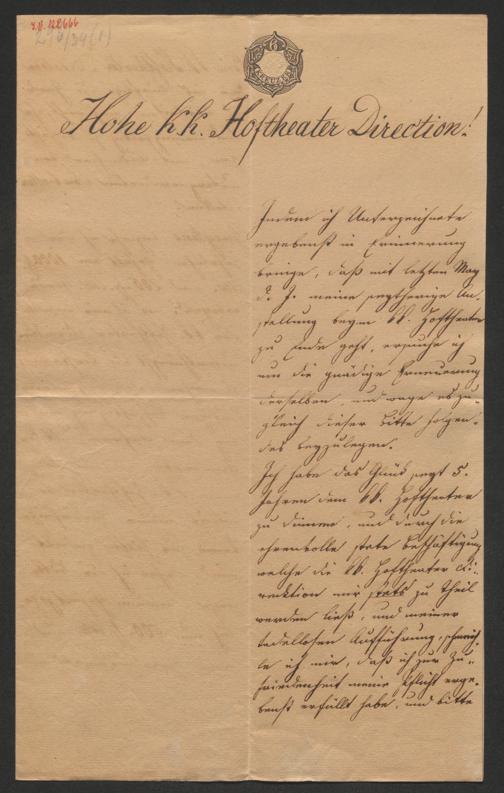 I.N. 122666
6
KREUZER
Hohe k.k. Hoftheater Direction!
Indem ich Unterzeichnete
ergebenst in Erinnerung
bringe, daß mit letzten May
d. J. meine Anstellung
stellung beym kk. Hoftheater
zu Ende geht, ersuche ich
um die gnädige Erneuerung
derselben, und wage es zu-
gleich dieser Bitte folgen-
des beyzulegen.
Ich habe das Glück jezt 5.
Jahren dem kk. Hoftheater
zu dienen, und durch die
ehrenvolle stete Beschäftigung
welche die kk. Hoftheater Di-
rektion mir stets zu Theil
werden ließ, und meiner
tadellosen Aufführung, schmeich-
le ich mir, daß ich zur Zu-
friedenheit meine Pflicht erge-
benst erfüllt habe, und bitte